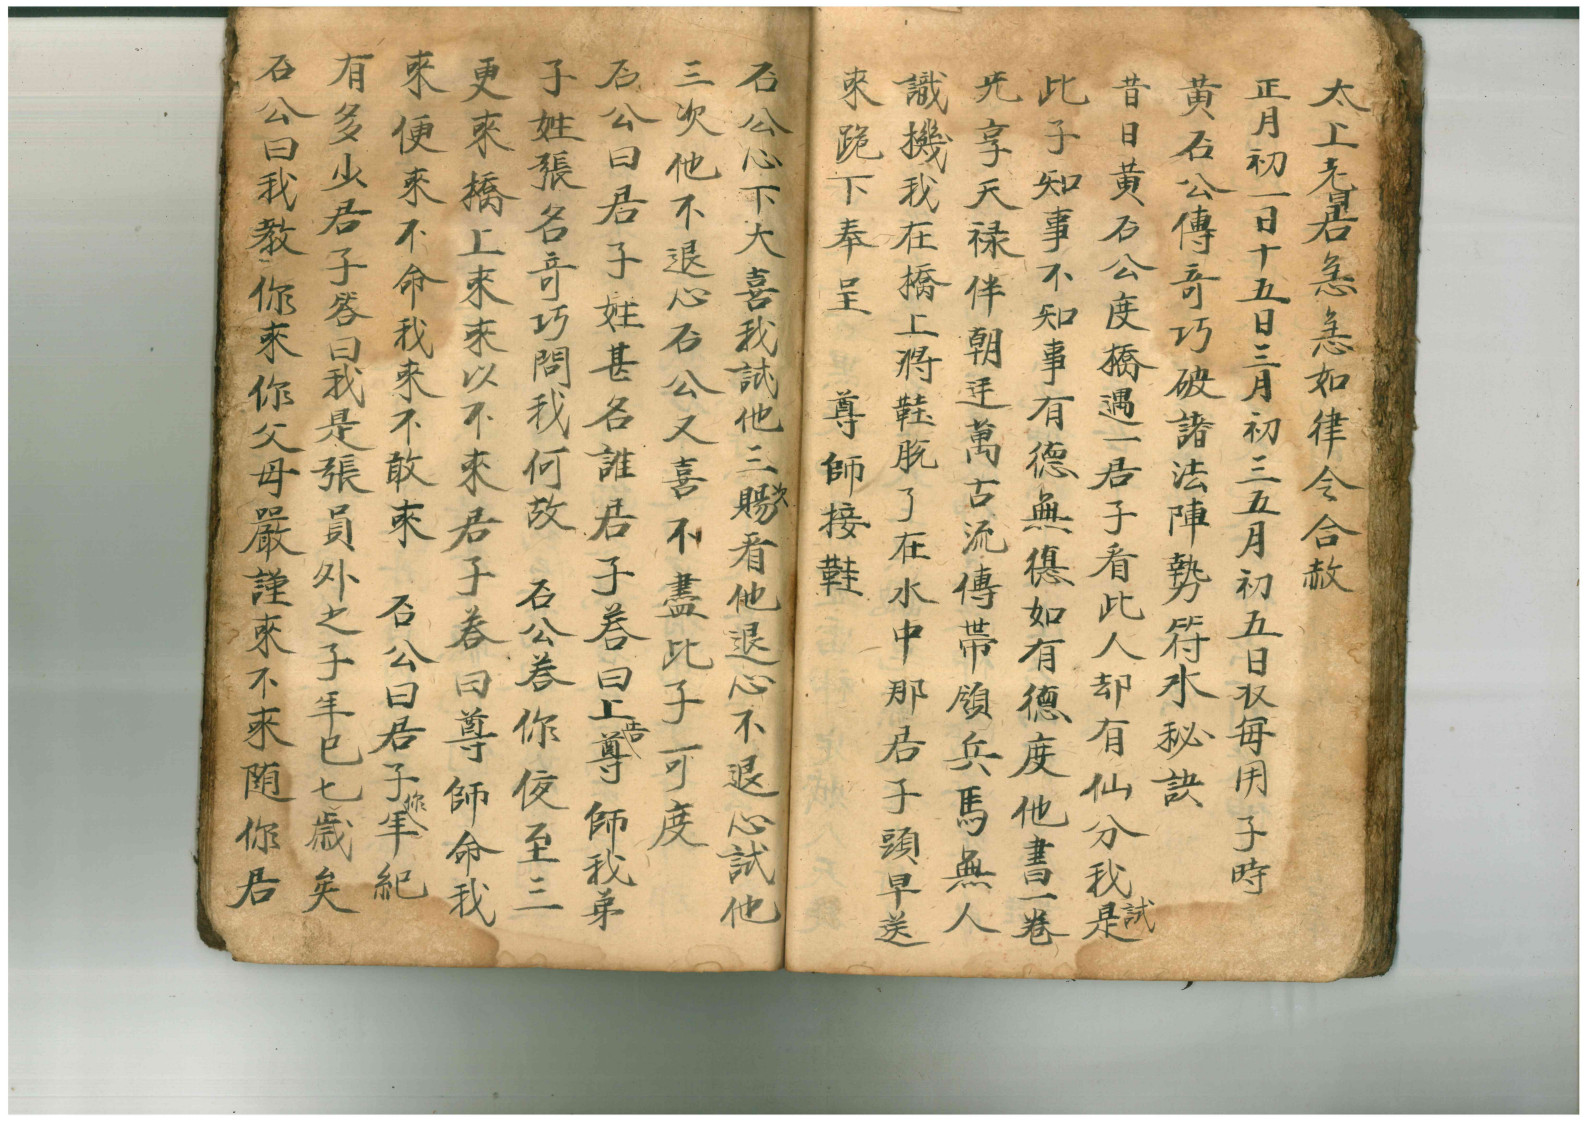 太上老君急急如律令合赦
正月初一日十五日三月初三五月初五日収每用子時
黃石公傳奇巧破諸法陣勢符水秘訣
昔日黃石公度橋遇一居子看此人却有仙分我試是
此子知事不知事有德無德如有德度他書一卷
先享天禄伴朝廷萬古流傳帶領兵馬無人
識機我在橋上將鞋脫了在水中那居子頭早送
來跪下奉呈　尊師接鞋
石公心下大喜我試他三賜次看他退心不退心試他
三次他不退心石公又喜不盡比子可度
石公曰居子姓甚名誰居子荅曰上告尊師我弟
子姓張名奇巧問我何故　石公荅你夜至三
更來橋上來來以不來居子荅曰尊師命我
來便來不命我來不敢來　石公曰居子你年紀
有多少居子答曰我是張員外之子年巳七歲矣
石公曰我教你來你父母嚴謹來不來随你居